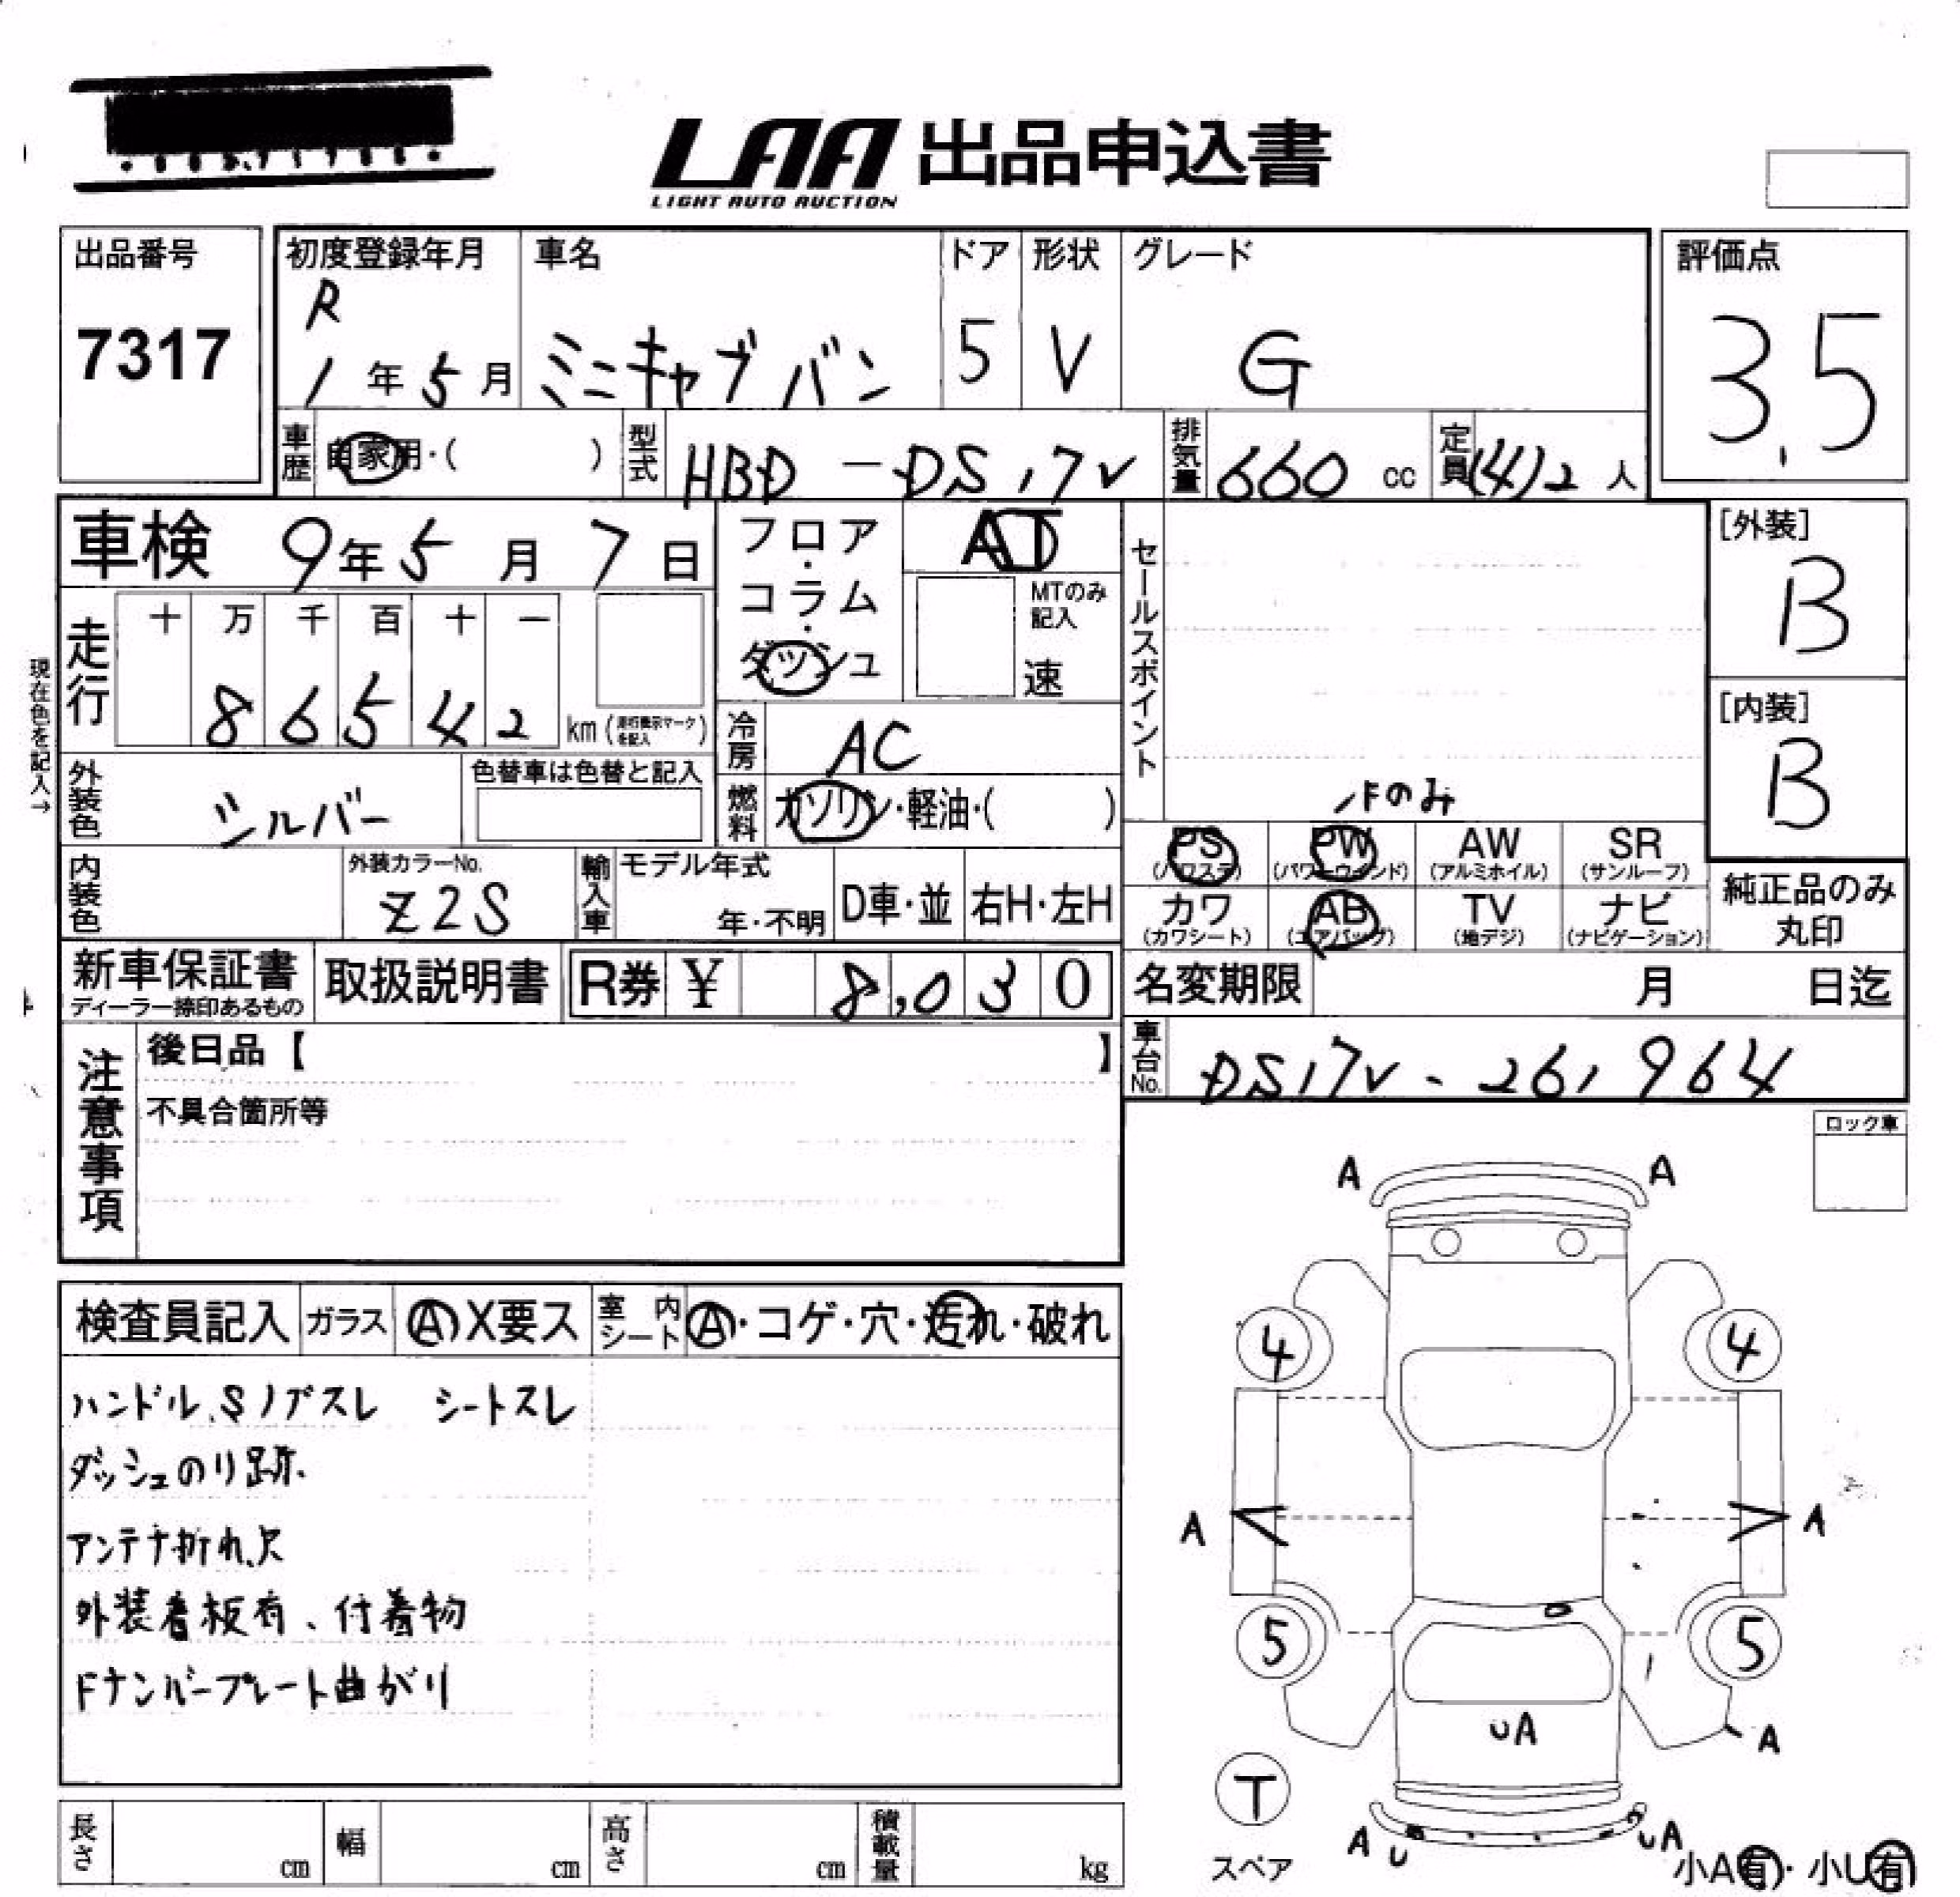 LAA 出品申込書
LIGHT AUTO AUCTION
出品番号
7317
初度登録年月
R
1年5月
車名
ミニキャブバン
ドア
5
形状
V
グレード
G
評価点
3.5
車歴 自家用・( )
型式 HBD-DS17V
排気量 660 cc
定員 (4)2 人
車検 9年5月7日
フロア・コラム・ダッシュ
AT
MTのみ記入
速
セールスポイント
[外装]
B
[内装]
B
現在色を記入→
走行
十 万 千 百 十 一
8 6 5 4 2 km (走行表示マークを記入)
冷房 AC
外装色 シルバー
色替車は色替と記入
燃料 ガソリン・軽油・( )
Fのみ
PS (パワステ)
PW (パワーウインド)
AW (アルミホイル)
SR (サンルーフ)
内装色
外装カラーNo.
Z2S
輸入車
モデル年式
年・不明
D車・並
右H・左H
カワ (カワシート)
AB (エアバッグ)
TV (地デジ)
ナビ (ナビゲーション)
純正品のみ丸印
新車保証書
ディーラー捺印あるもの
取扱説明書
R券 ¥ 8,030
名変期限 月 日迄
車台No. DS17V-261964
注意事項
後日品【 】
不具合箇所等
ロック車
検査員記入
ガラス A X要ス
室内シート A・コゲ・穴・汚れ・破れ
ハンドル、Sノブスレ シートスレ
ダッシュのり跡
アンテナ折れ、欠
外装看板有、付着物
Fナンバープレート曲がり
A A
4 4
A A
5 5
UA
A
T
スペア
A U UA
小A有・小U有
長さ cm
幅 cm
高さ cm
積載量 kg